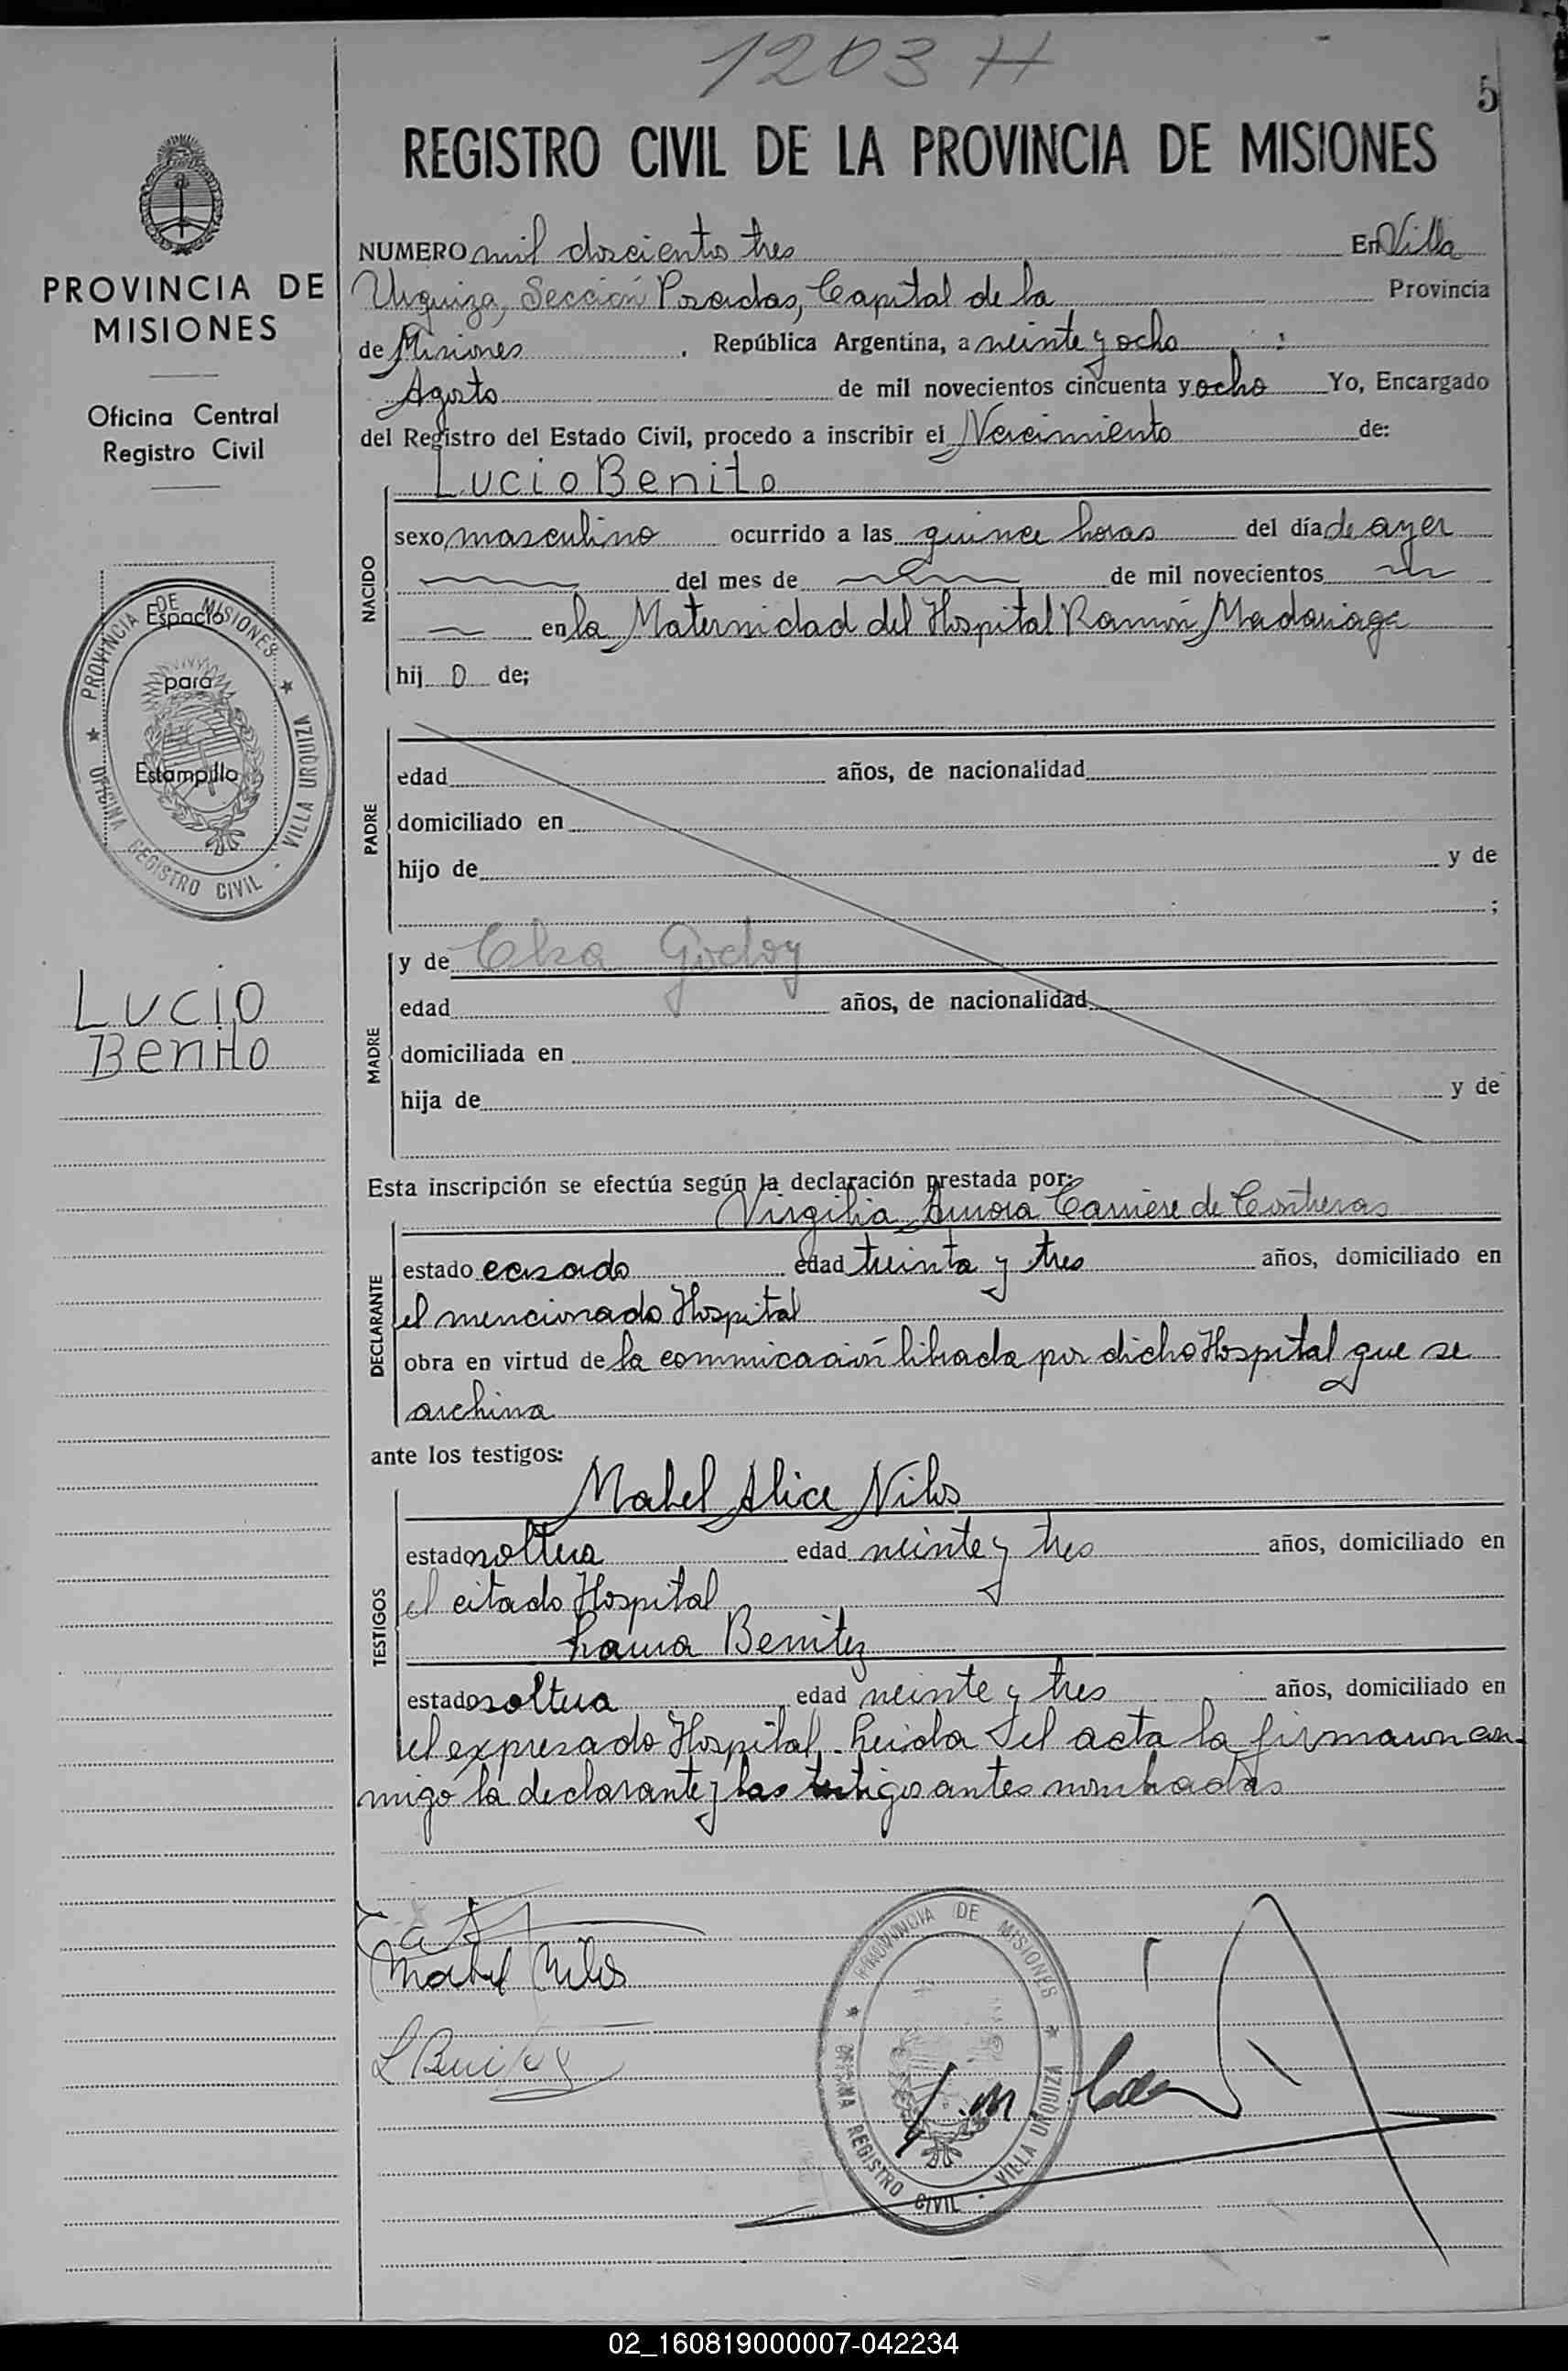 1203 H
5
REGISTRO CIVIL DE LA PROVINCIA DE MISIONES
PROVINCIA DE
MISIONES
Oficina Central
Registro Civil
Espacio
para
Estampilla
PROVINCIA DE MISIONES
OFICINA REGISTRO CIVIL - VILLA URQUIZA
Lucio
Benito
NUMERO mil doscientos tres En Villa
Urquiza, Sección Posadas, Capital de la Provincia
de Misiones, República Argentina, a veinte y ocho
Agosto de mil novecientos cincuenta y ocho Yo, Encargado
del Registro del Estado Civil, procedo a inscribir el Nacimiento de:
NACIDO
Lucio Benito
sexo masculino ocurrido a las quince horas del día de ayer
del mes de de mil novecientos
en la Maternidad del Hospital Ramón Madariaga
hij o de;
PADRE
edad años, de nacionalidad
domiciliado en
hijo de y de
;
MADRE
y de Elsa Godoy
edad años, de nacionalidad
domiciliada en
hija de y de
Esta inscripción se efectúa según la declaración prestada por:
DECLARANTE
Virgilia Aurora de Contreras
estado casado edad treinta y tres años, domiciliado en
el mencionado Hospital
obra en virtud de la comunicación librada por dicho Hospital que se
archiva
ante los testigos:
TESTIGOS
Mabel Alice Nilos
estado soltera edad veinte y tres años, domiciliado en
el citado Hospital
Laura Benitez
estado soltera edad veinte y tres años, domiciliado en
el expresado Hospital. Leida el acta la firmaron con-
migo la declarante y las testigos antes nombradas
Mabel Nilos
L Benitez
PROVINCIA DE MISIONES
OFICINA REGISTRO CIVIL - VILLA URQUIZA
02_160819000007-042234